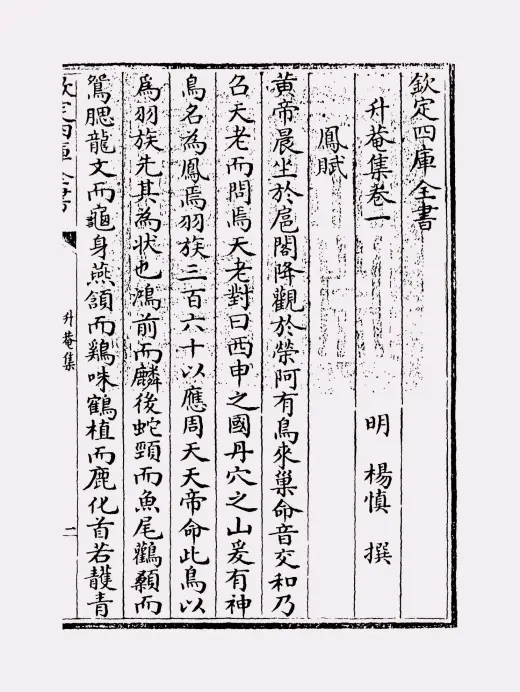 欽定四庫全書
升菴集卷一
明 楊慎 撰
鳳賦
黄帝晨坐於扈閣降觀於榮阿有鳥來巢命音交和乃
召天老而問焉天老對曰西申之國丹穴之山爰有神
鳥名為鳳焉羽族三百六十以應周天天帝命此鳥以
為羽族先其為状也鴻前而麟後蛇頸而魚尾鸛顙而
鴛腮龍文而龜身燕頷而鷄咮鶴植而鹿化首若䕶青
欽定四庫全書
升菴集